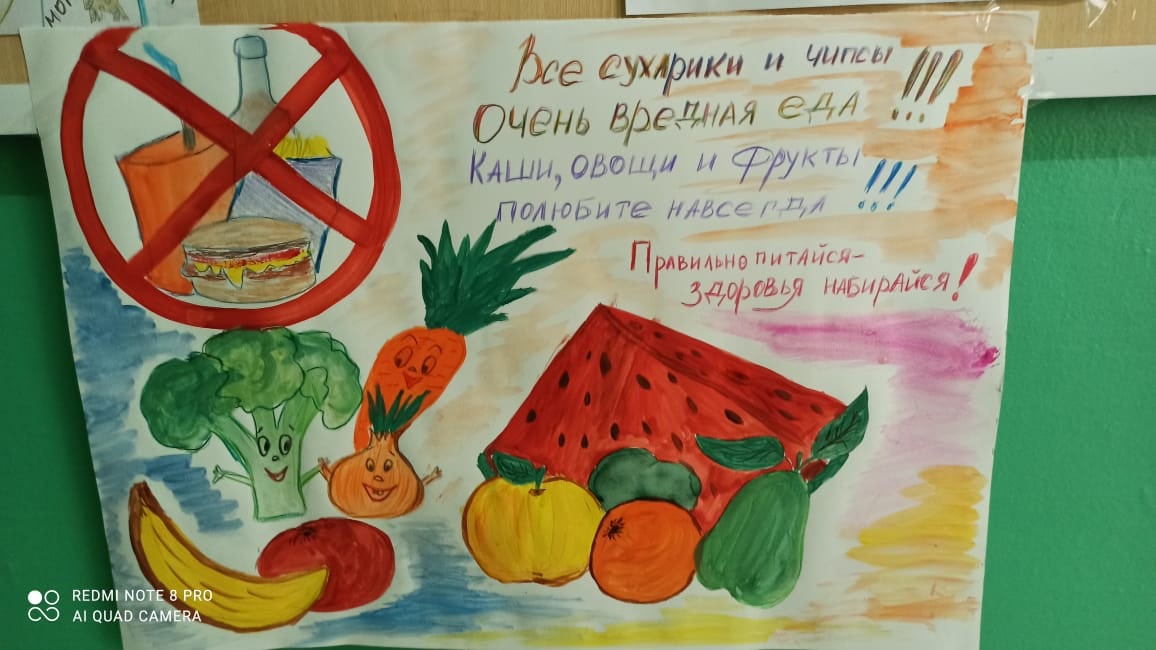 мог
Все сухарики и чипсы !!!
Очень вредная еда
Каши, овощи и фрукты !!!
полюбите навсегда
Правильно питайся-
здоровья набирайся!
REDMI NOTE 8 PRO
AI QUAD CAMERA